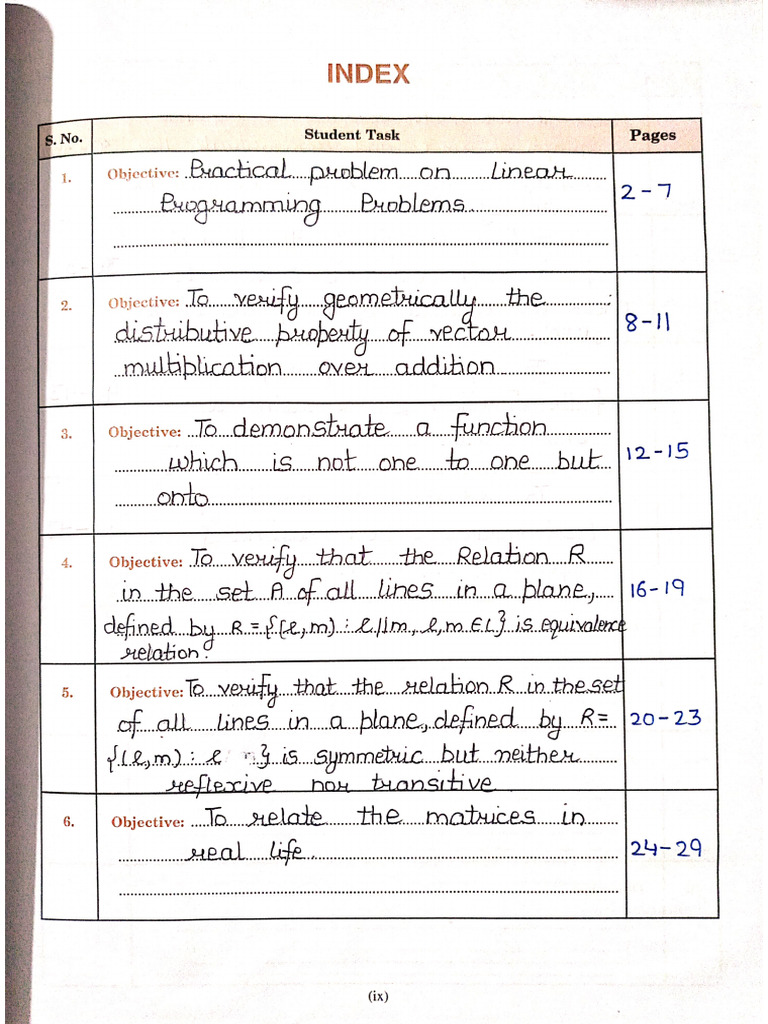 INDEX
S. No. Student Task Pages
1. Objective: Practical problem on Linear
Programming Problems.
2-7
2. Objective: To verify geometrically the
distributive property of vector
multiplication over addition
8-11
3. Objective: To demonstrate a function
which is not one to one but
onto
12-15
4. Objective: To verify that the Relation R
in the set A of all lines in a plane,
defined by R = {(l,m) : l||m, l,m ∈ L} is equivalence
relation.
16-19
5. Objective: To verify that the relation R in the set
of all lines in a plane, defined by R =
{(l,m) : l m} is symmetric but neither
reflexive nor transitive
20-23
6. Objective: To relate the matrices in
real life.
24-29
(ix)